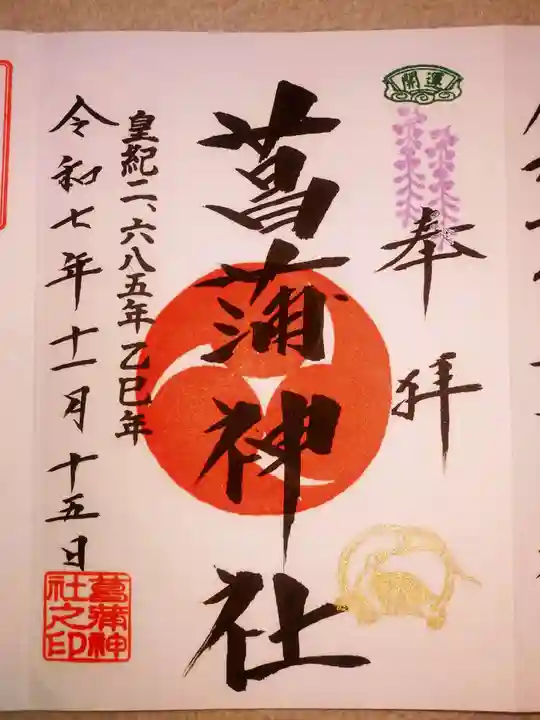 開運
奉拝
菖蒲神社
皇紀二、六八五年乙巳年
令和七年十一月十五日
菖蒲神
社之印